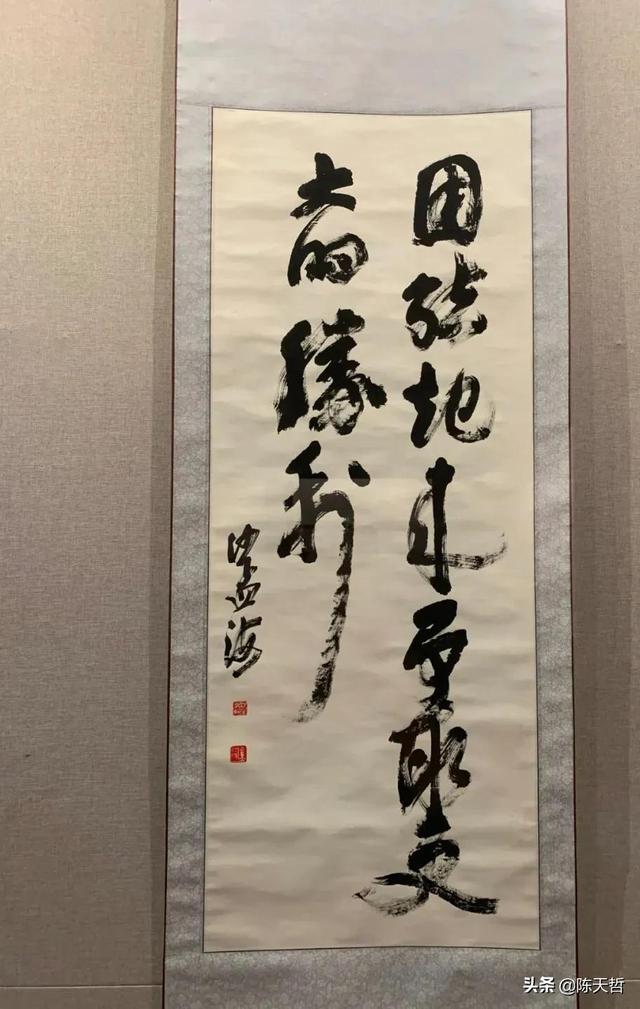 团结起来争取更
大的勝利
沙孟海
头条 @陈天哲